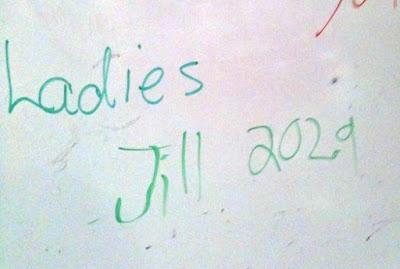 Ladies
Jill 2029